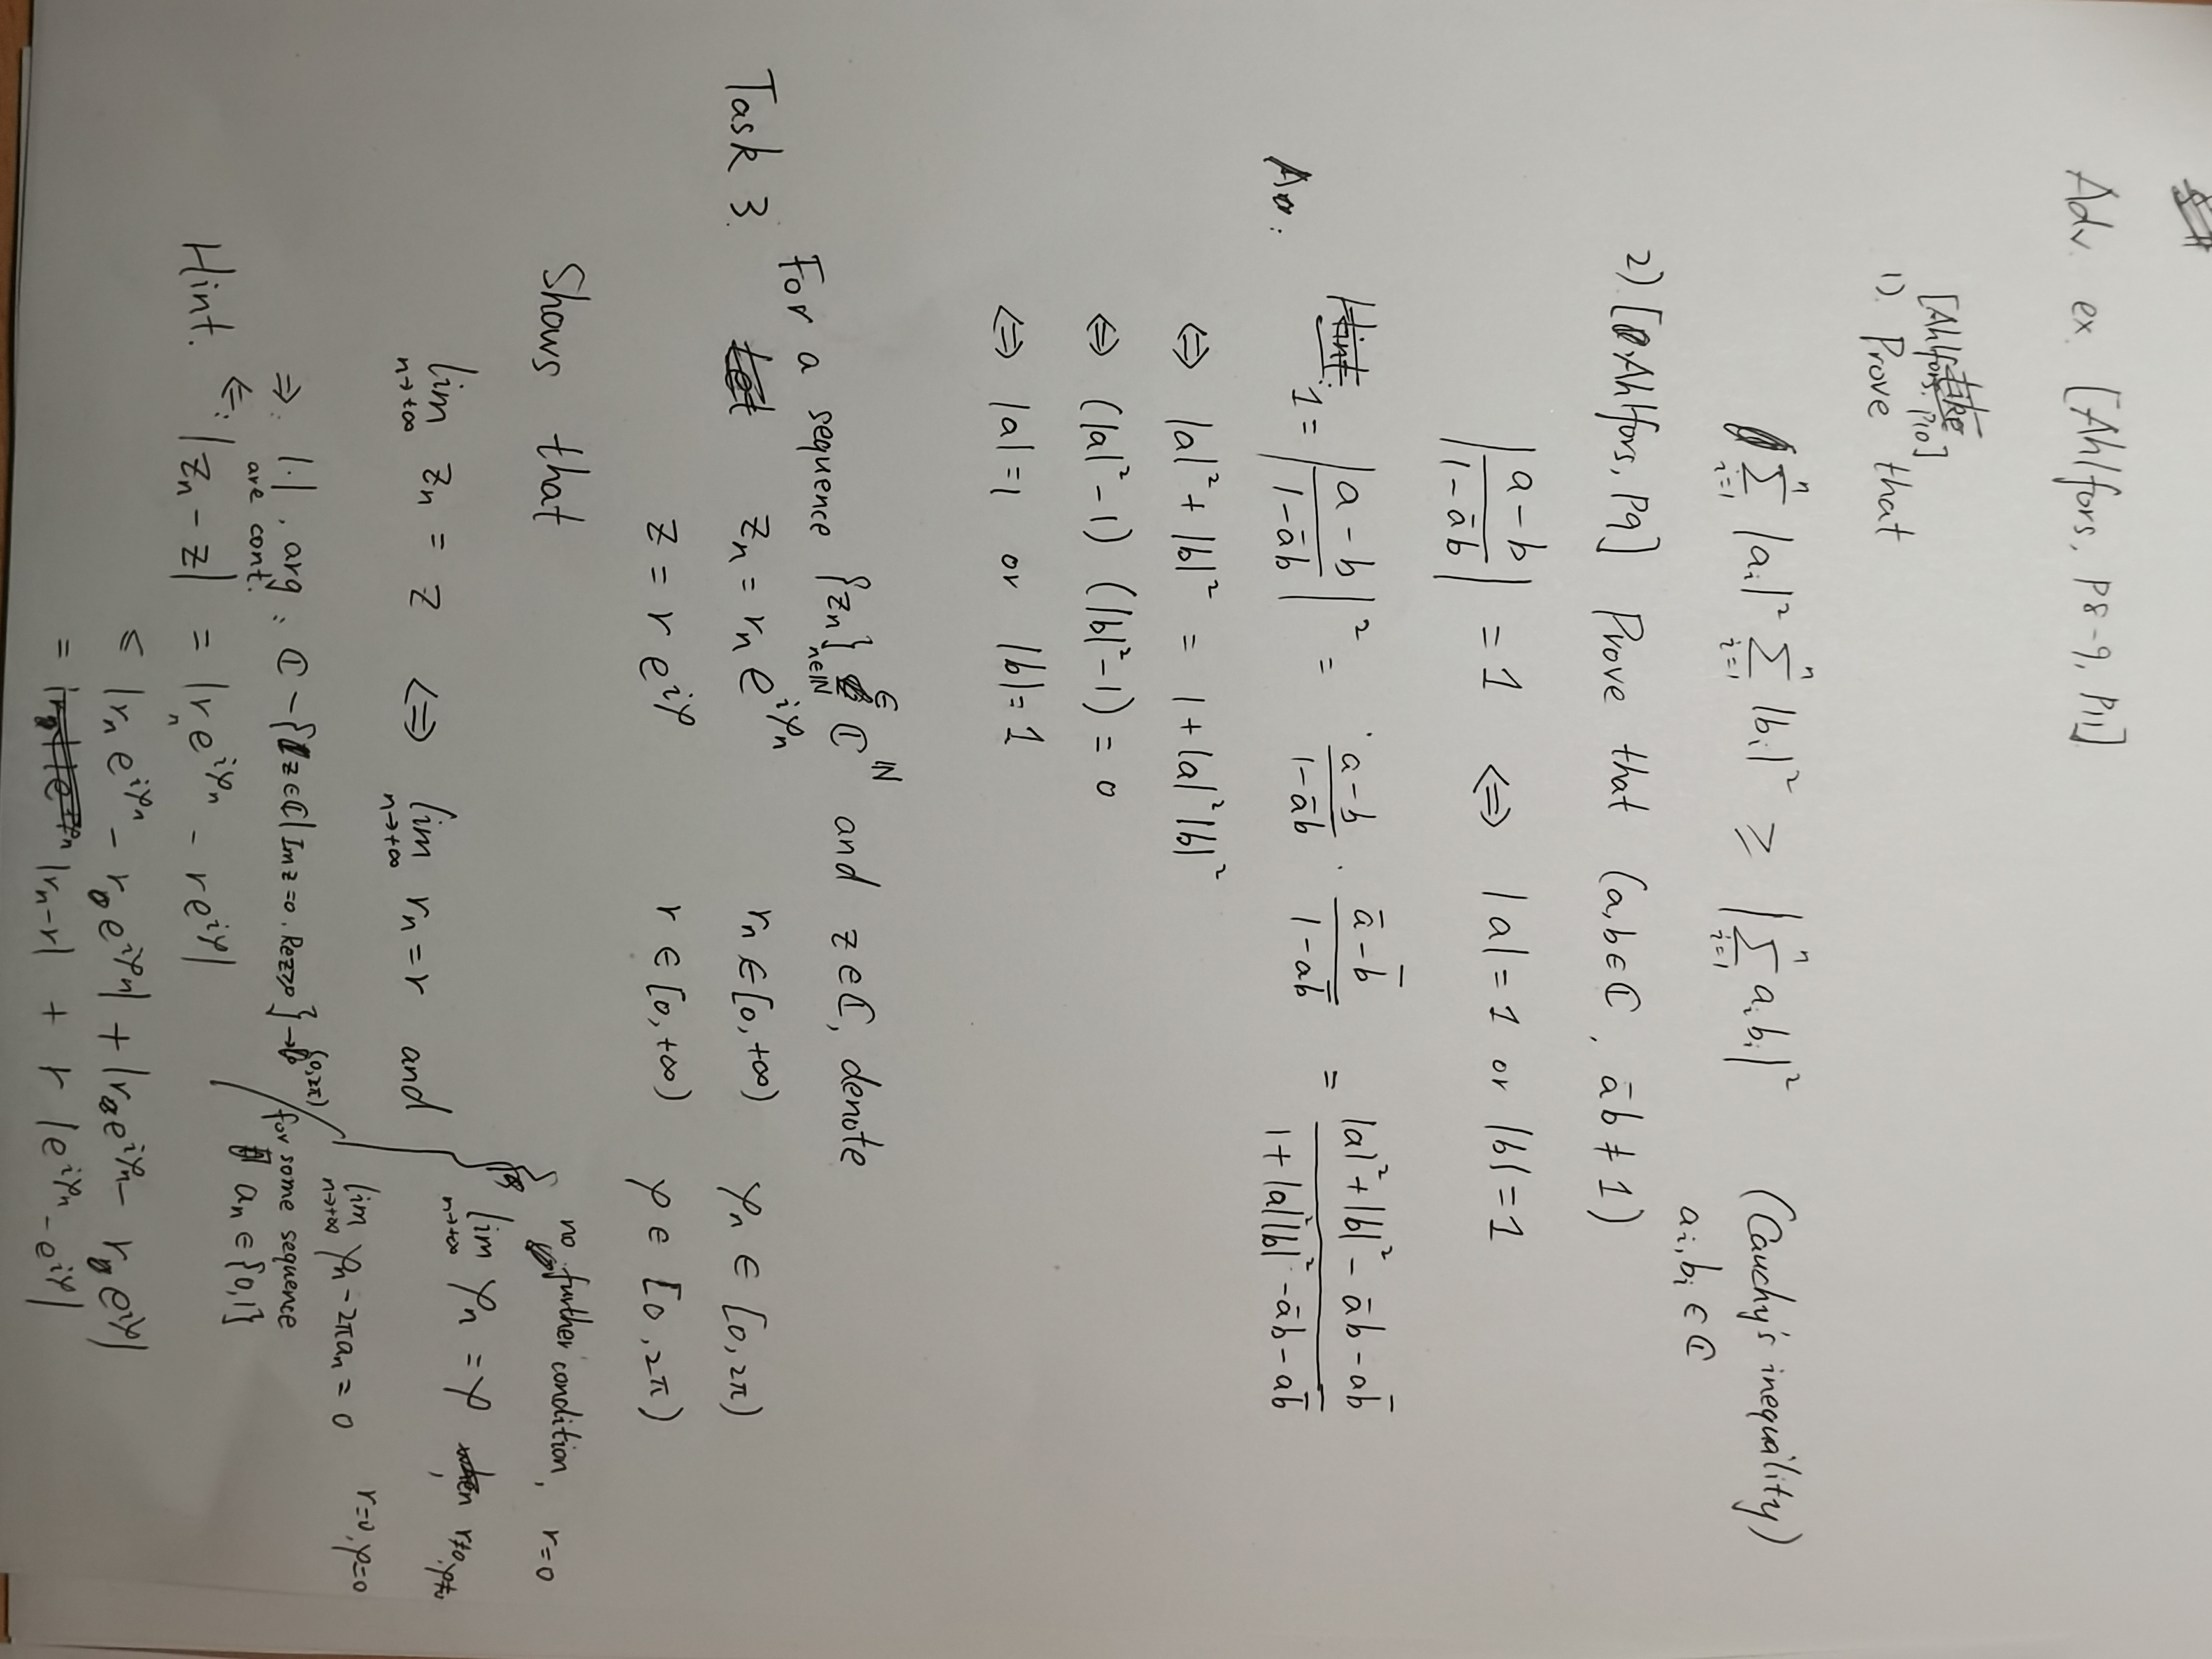 Adv. ex. [Ahlfors, P8-9, P11]
[Ahlfors, P10]
1) Prove that
$\sum_{i=1}^{n} |a_i|^2 \sum_{i=1}^{n} |b_i|^2 \geq \left| \sum_{i=1}^{n} a_i b_i \right|^2$ (Cauchy's inequality)
$a_i, b_i \in \mathbb{C}$
2) [Ahlfors, P9] Prove that ($a, b \in \mathbb{C}$, $\bar{a}b \neq 1$)
$\left| \frac{a-b}{1-\bar{a}b} \right| = 1 \Leftrightarrow |a| = 1$ or $|b| = 1$
$1 = \left| \frac{a-b}{1-\bar{a}b} \right|^2 = \frac{a-b}{1-\bar{a}b} \cdot \frac{\bar{a}-\bar{b}}{1-a\bar{b}} = \frac{|a|^2+|b|^2-\bar{a}b-a\bar{b}}{1+|a|^2|b|^2-\bar{a}b-a\bar{b}}$
$\Leftrightarrow |a|^2 + |b|^2 = 1 + |a|^2 |b|^2$
$\Leftrightarrow (|a|^2 - 1)(|b|^2 - 1) = 0$
$\Leftrightarrow |a| = 1$ or $|b| = 1$
Task 3. For a sequence $\{z_n\}_{n \in \mathbb{N}} \in \mathbb{C}^{\mathbb{N}}$ and $z \in \mathbb{C}$, denote
$z_n = r_n e^{i\varphi_n}$ $r_n \in [0, +\infty)$ $\varphi_n \in [0, 2\pi)$
$z = r e^{i\varphi}$ $r \in [0, +\infty)$ $\varphi \in [0, 2\pi)$
Shows that
$\lim_{n \to +\infty} z_n = z \Leftrightarrow \lim_{n \to +\infty} r_n = r$ and
no further condition, $r = 0$
$\lim_{n \to +\infty} \varphi_n = \varphi$, $r \neq 0, \varphi \neq 0$
$\lim_{n \to +\infty} \varphi_n - 2\pi a_n = 0$ $r = 0, \varphi = 0$
for some sequence
$a_n \in \{0, 1\}$
$\Rightarrow$: $|\cdot|$, arg: $\mathbb{C} - \{z \in \mathbb{C} | \text{Im} z = 0, \text{Re} z \geq 0\} \to (0, 2\pi)$
are cont.
Hint. $\Leftarrow$: $|z_n - z| = |r_n e^{i\varphi_n} - r e^{i\varphi}|$
$\leq |r_n e^{i\varphi_n} - r e^{i\varphi_n}| + |r e^{i\varphi_n} - r e^{i\varphi}|$
$= |r_n - r| + r |e^{i\varphi_n} - e^{i\varphi}|$